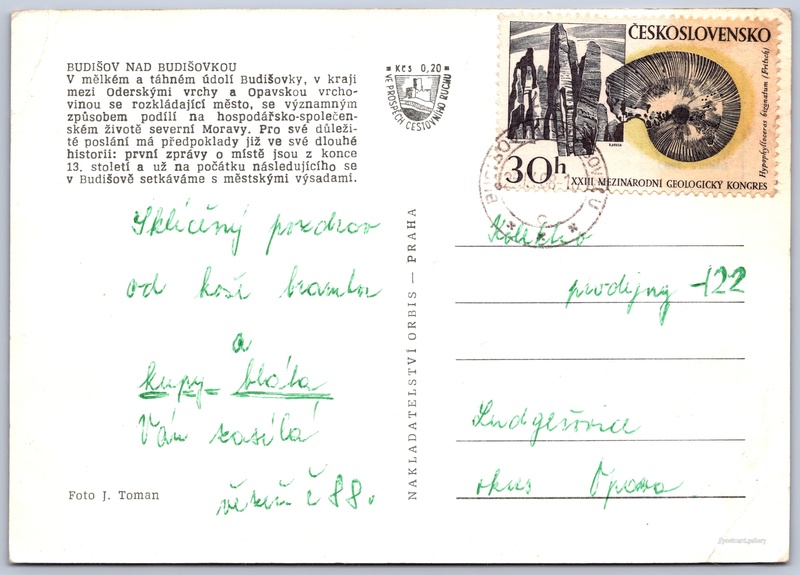 BUDIŠOV NAD BUDIŠOVKOU
V mělkém a táhném údolí Budišovky, v kraji
mezi Oderskými vrchy a Opavskou vrcho-
vinou se rozkládající město, se významným
způsobem podílí na hospodářsko-společen-
ském životě severní Moravy. Pro své důleži-
té poslání má předpoklady již ve své dlouhé
historii: první zprávy o místě jsou z konce
13. století a už na počátku následujícího se
v Budišově setkáváme s městskými výsadami.
Kčs 0,20
VE PROSPĚCH CESTOVNÍHO RUCHU
ČESKOSLOVENSKO
Hypophylloceras bizonatum (Fritsch)
30h
XXIII. MEZINÁRODNÍ GEOLOGICKÝ KONGRES
Sklíčený pozdrav
od koší brambor
a
kupy bláta
Vám zasílá
vězeň č 88.
NAKLADATELSTVÍ ORBIS — PRAHA
prodejny 122
Ludgeřovice
okres Opava
Foto J. Toman